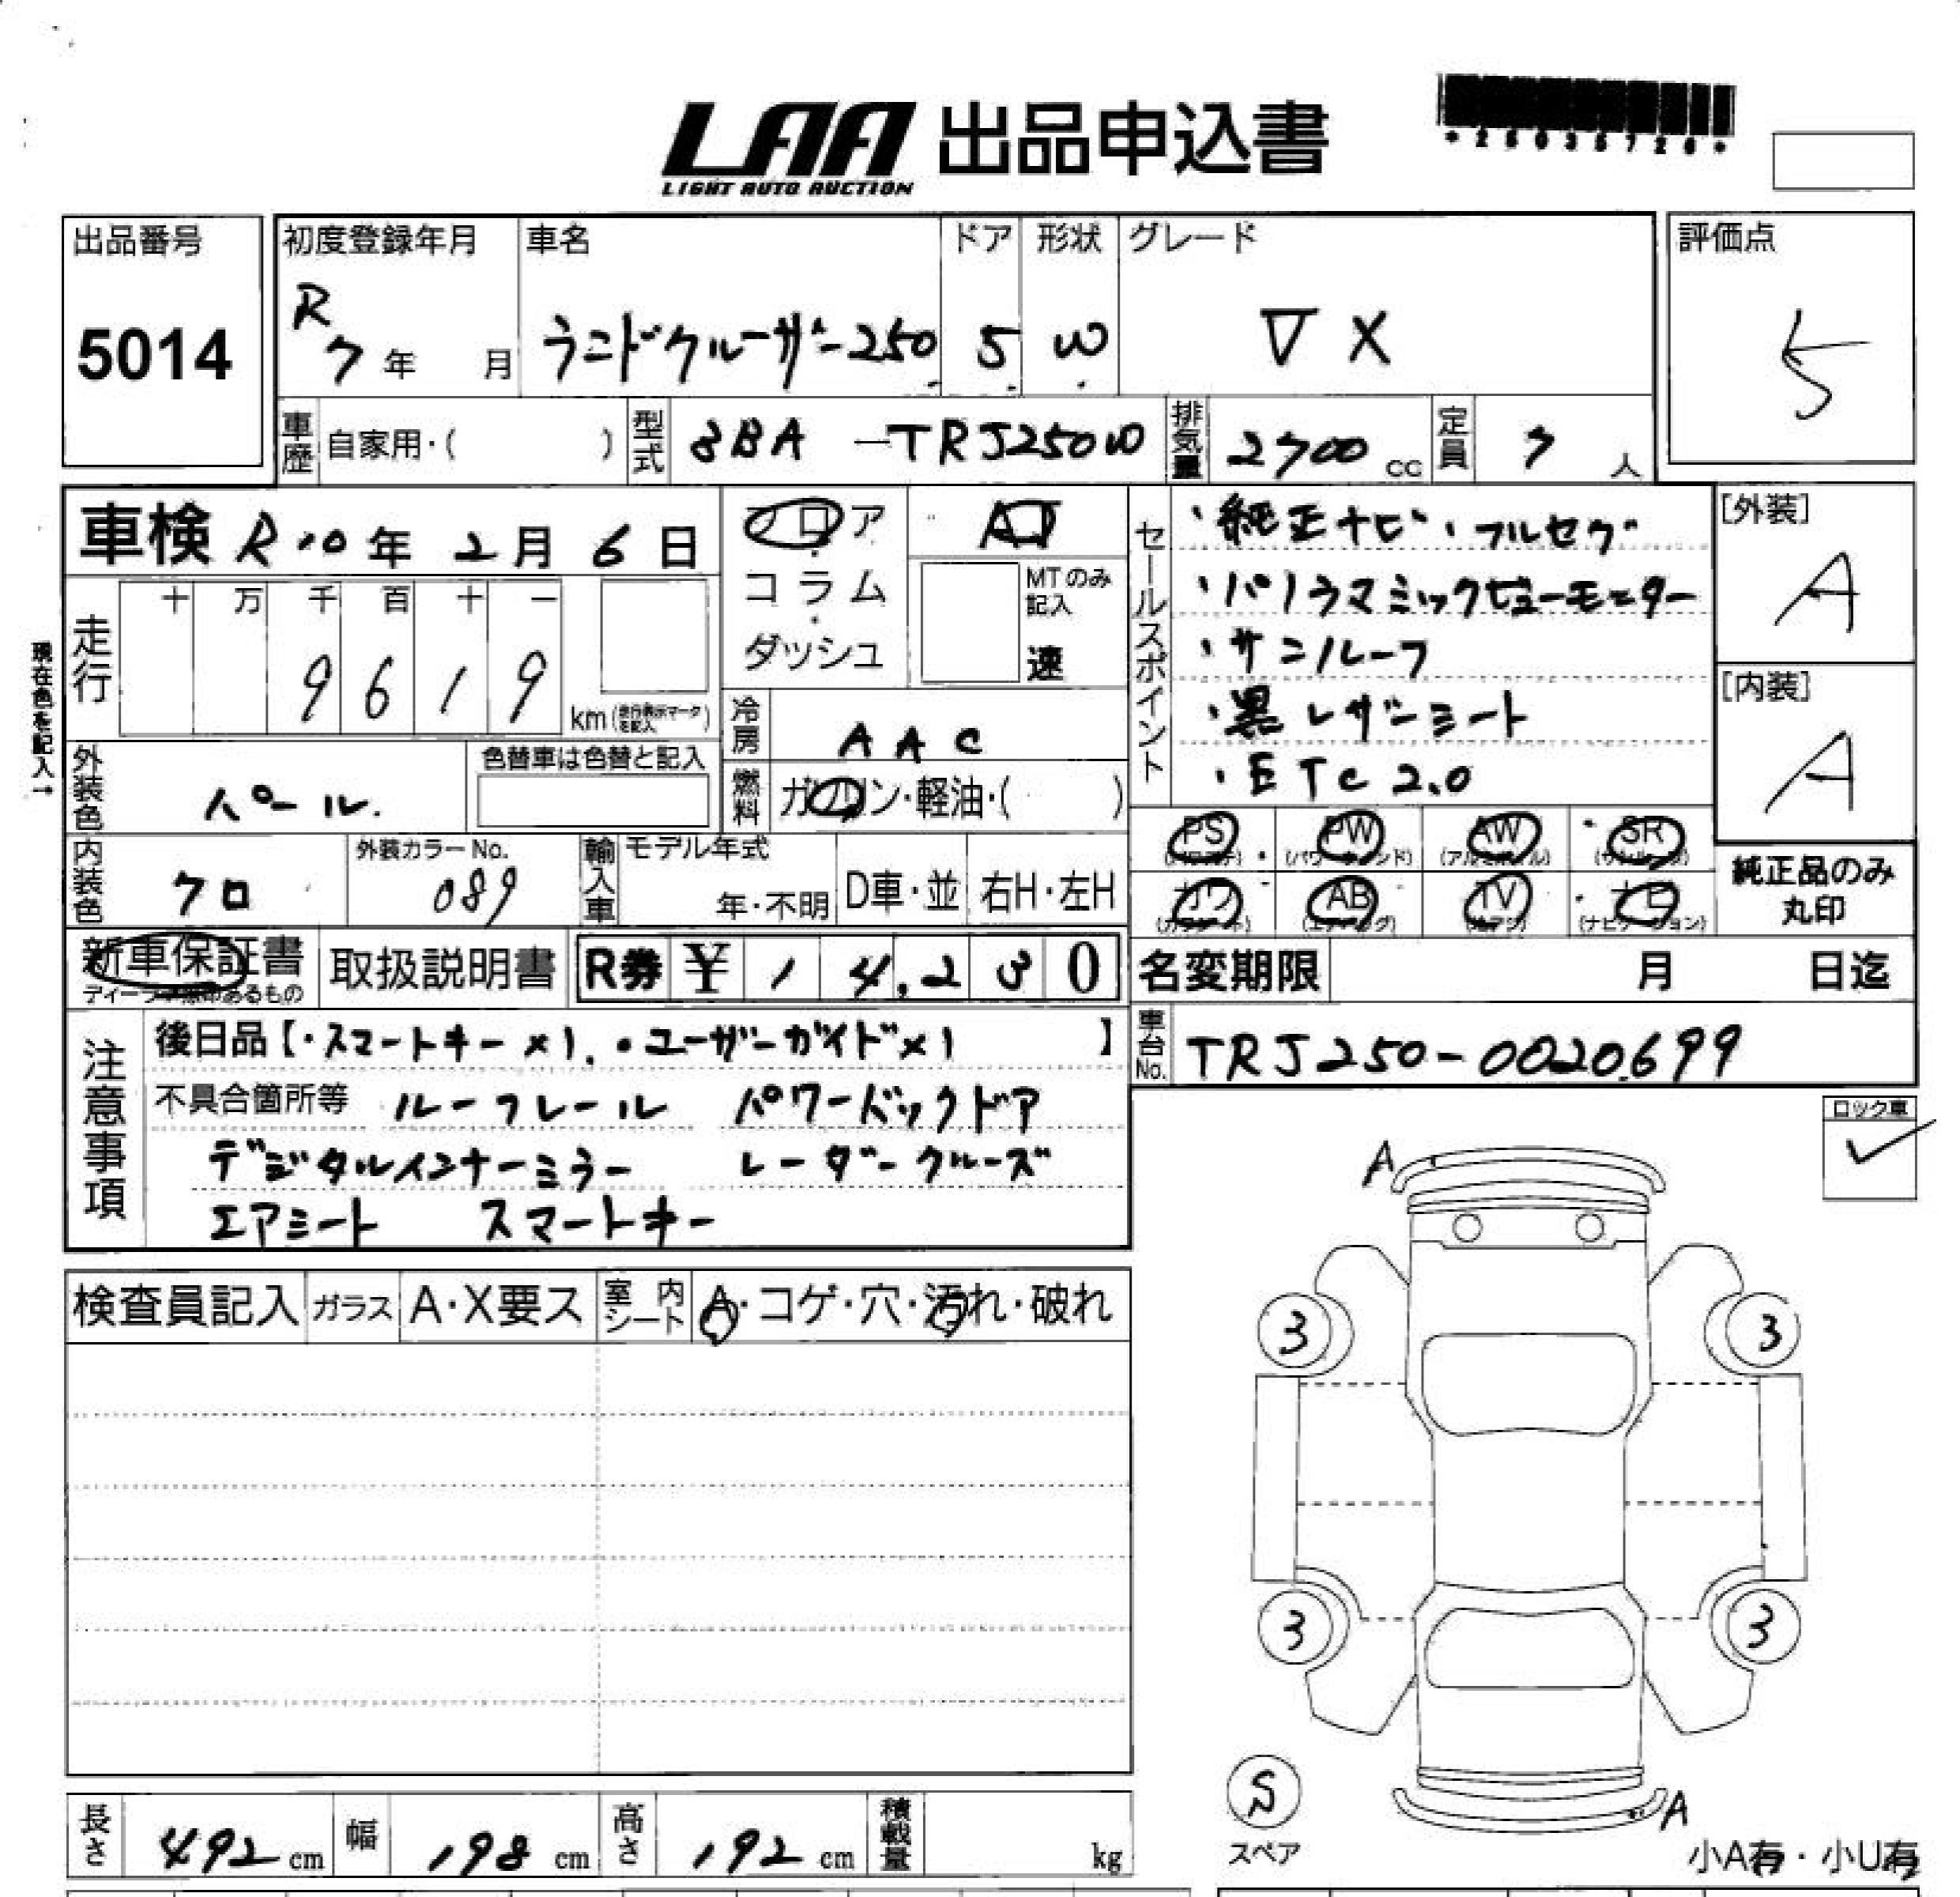 LAA 出品申込書
LIGHT AUTO AUCTION
出品番号
5014
初度登録年月
R
7年 月
車名
ランドクルーザー250
ドア
5
形状
W
グレード
VX
評価点
5
車歴 自家用・( )
型式 3BA-TRJ250W
排気量 2700 cc
定員 7 人
車検 R10年2月6日
フロア・コラム・ダッシュ
AT
MTのみ記入
速
現在色を記入→
走行
十 万 千 百 十 一
9 6 1 9 km(走行表示マークを記入)
冷房 AAC
燃料 ガソリン・軽油・( )
外装色 パール.
色替車は色替と記入
内装色 クロ
外装カラーNo.
089
輸入車
モデル年式
年・不明
D車・並
右H・左H
セールスポイント
・純正ナビ、フルセグ
・パノラマミックビューモニター
・サンルーフ
・黒レザーシート
・ETC2.0
[外装]
A
[内装]
A
PS PW AW SR
カワ AB TV ナビ
(ナビゲーション)
純正品のみ
丸印
新車保証書
取扱説明書
R券 ¥ 14,230
名変期限 月 日迄
注意事項
後日品【・スマートキー×1.・ユーザーガイド×1 】
不具合箇所等 ルーフレール パワーバックドア
デジタルインナーミラー レーダークルーズ
エアシート スマートキー
車台No. TRJ250-0020699
ロック車
検査員記入
ガラス A・X要ス
室内シート A・コゲ・穴・汚れ・破れ
A
3 3
3 3
S
スペア
A
小A有・小U有
長さ 492 cm
幅 198 cm
高さ 192 cm
積載量 kg